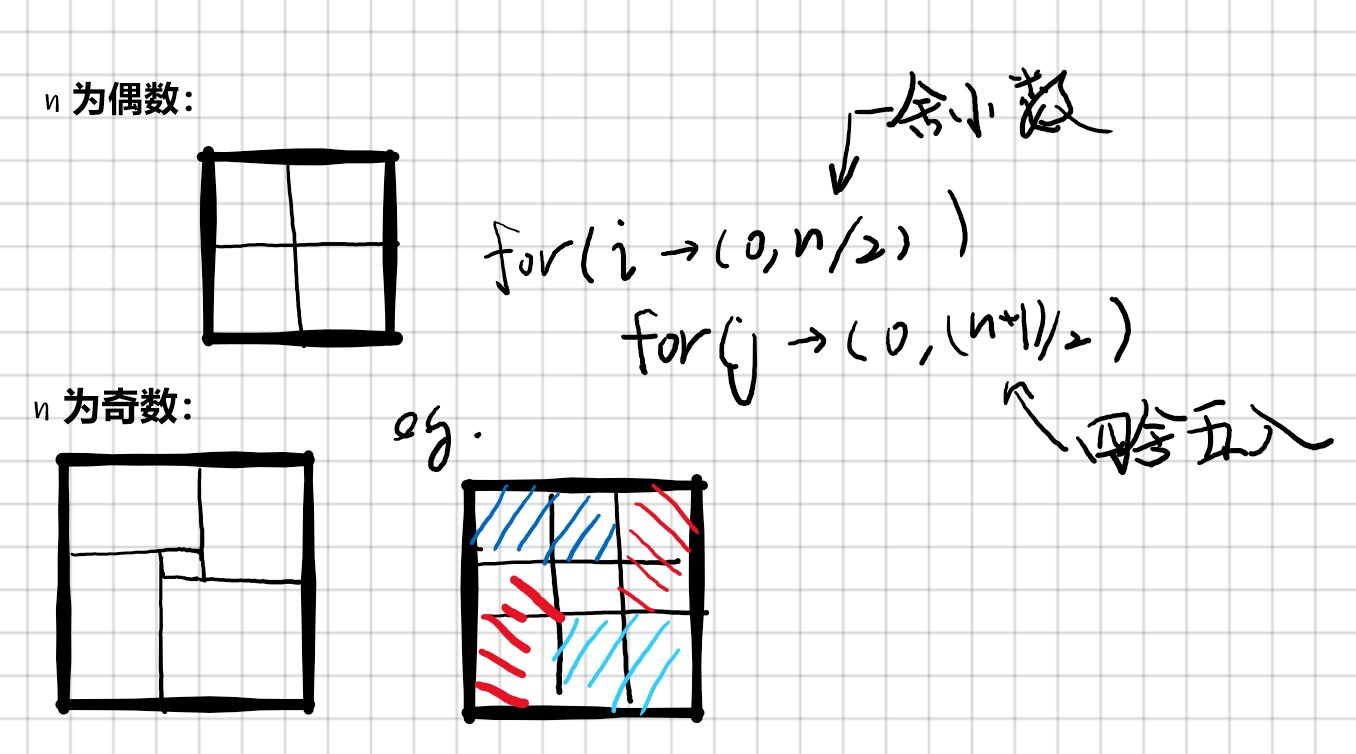 n 为偶数：
舍小数
for(i → (0, n/2))
for(j → (0, (n+1)/2)
四舍五入
n 为奇数：
eg.